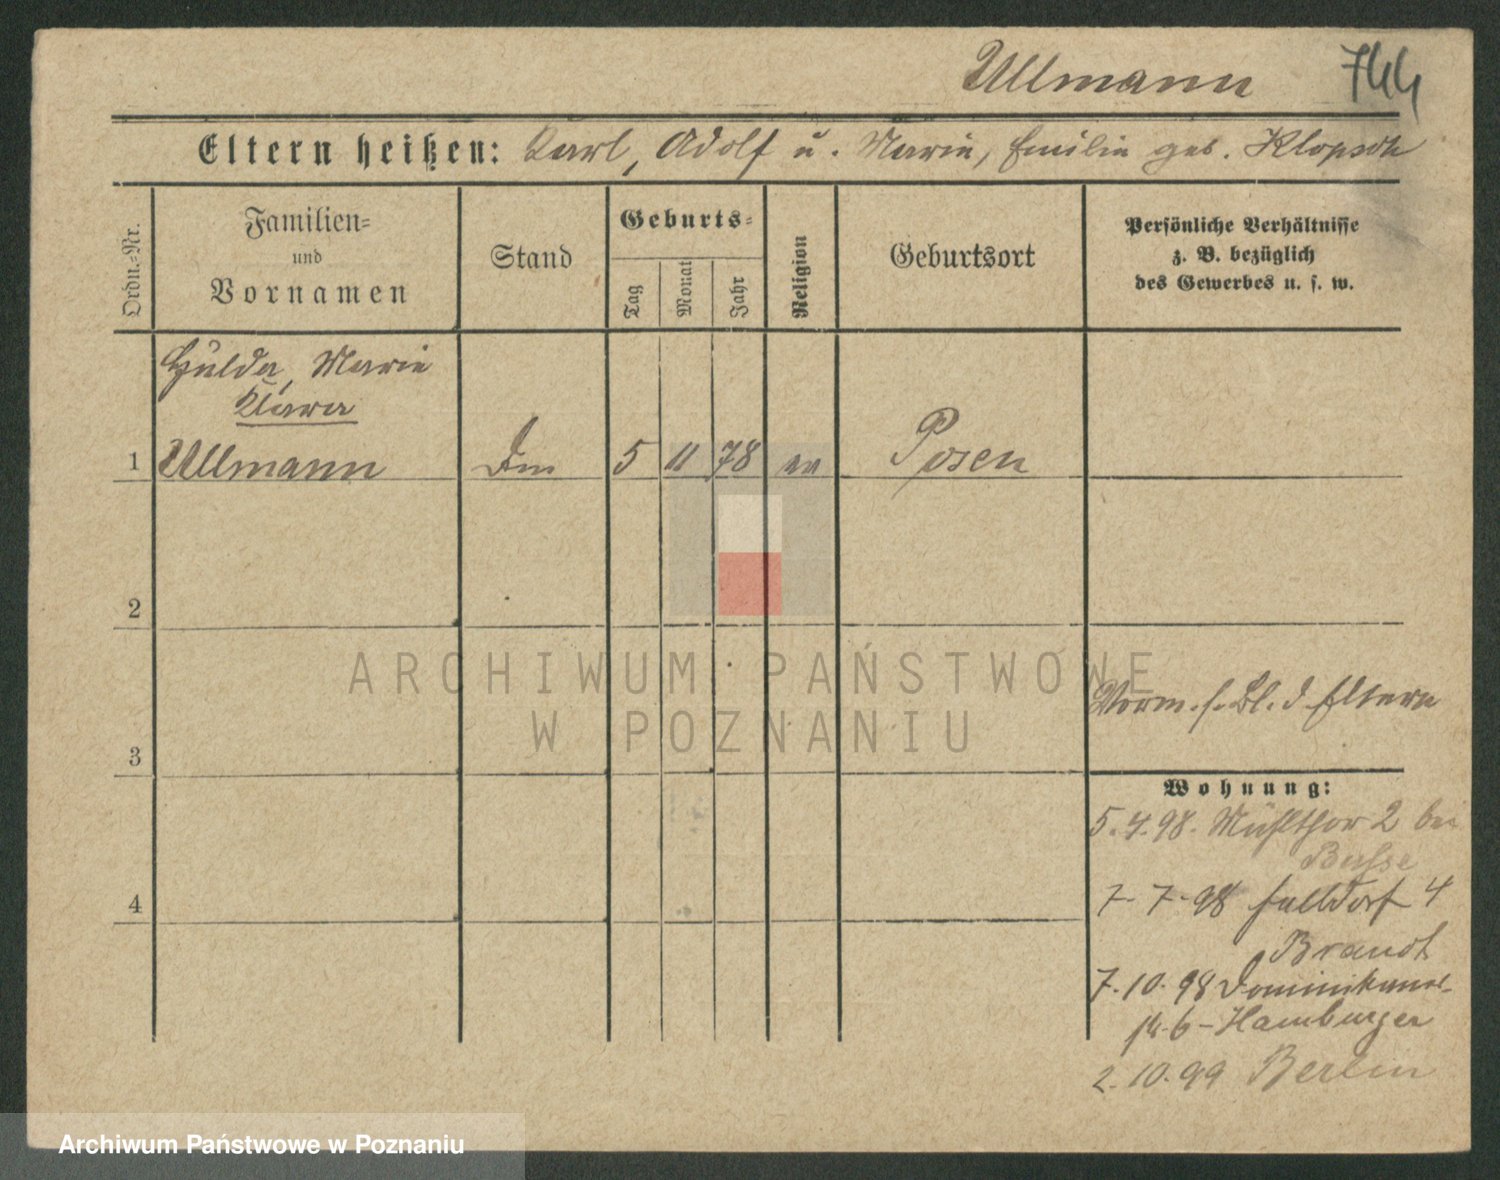 Ullmann 744
Eltern heißen: Karl, Adolf u. Marie, Emilie geb. Klopsch
Ordn.=Nr.
Familien=
und
Vornamen
Stand
Geburts=
Tag
Monat
Jahr
Religion
Geburtsort
Persönliche Verhältnisse
z. B. bezüglich
des Gewerbes u. s. w.
Hulda, Marie
Klara
1 Ullmann 5 11 78 ev Posen
2
ARCHIWUM PAŃSTWOWE
W POZNANIU
Vorm. s. Bl. d. Eltern
3
Wohnung:
5.4.98. Mühlthor 2 bei
Busse
4
7-7-98 4
Brandt
7.10.98 Dominikaner-
6 - Hamburger
2.10.99 Berlin
Archiwum Państwowe w Poznaniu